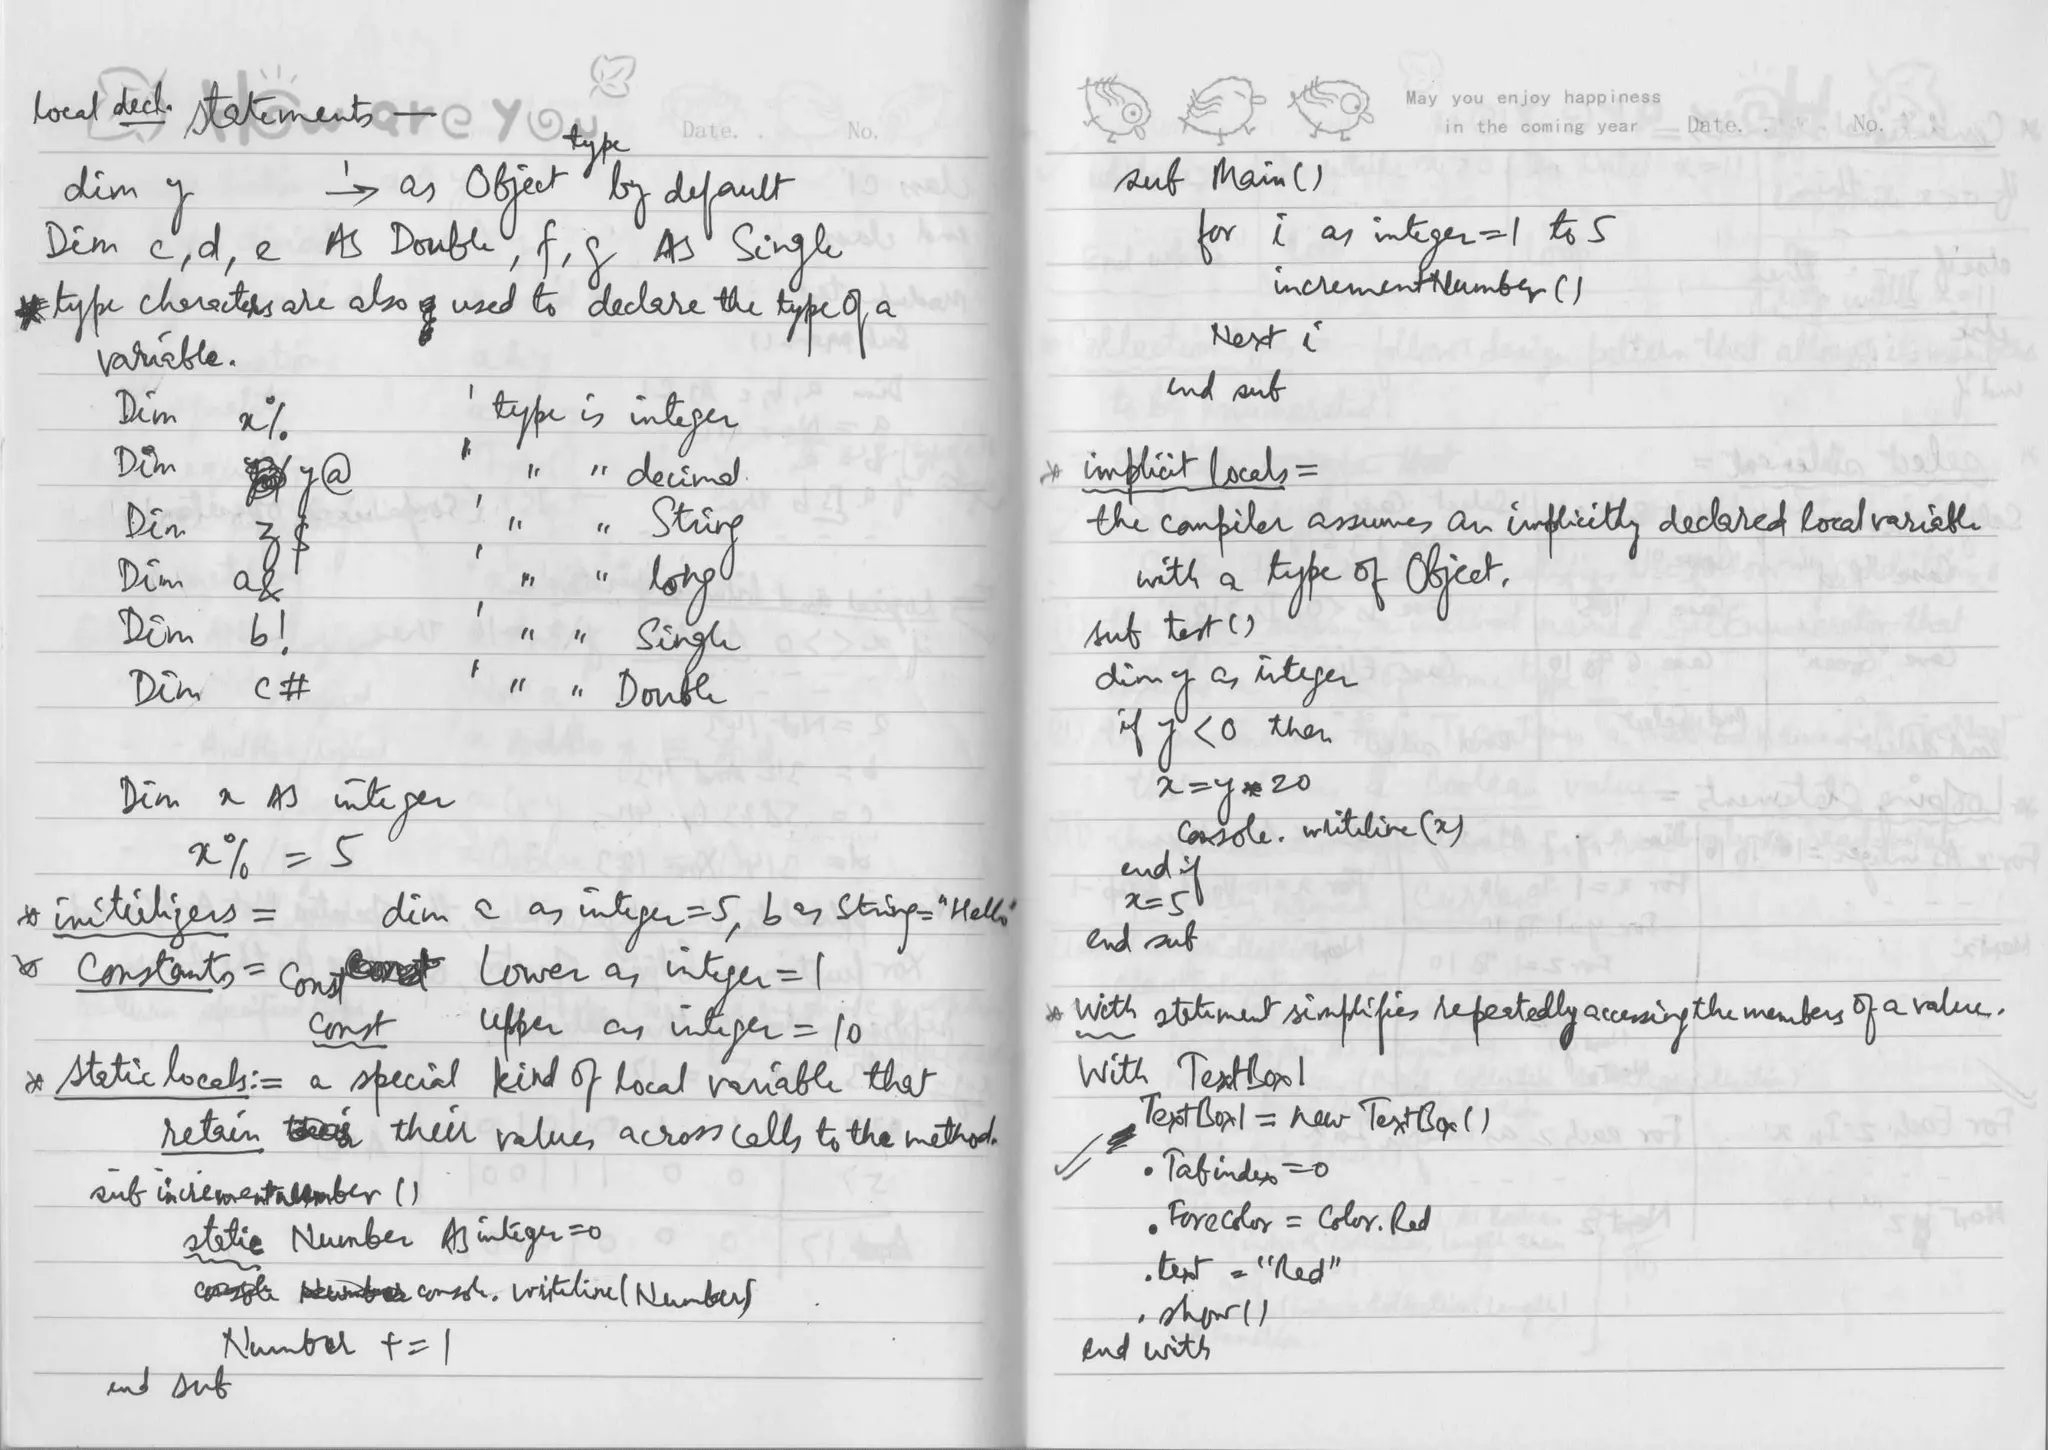 How are you
Date. No.
local decl. statements —
dim y '→ as Object type by default
Dim c, d, e As Double, f, g As Single
* type characters are also used to declare the type of a
variable.
Dim x% ' type is integer
Dim y@ ' " " decimal
Dim z$ ' " " String
Dim a& ' " " long
Dim b! ' " " Single
Dim c# ' " " Double
Dim x As integer
x% = 5
* initializers = dim a as integer=5, b as String="Hello"
* Constants = Const Lower as integer = 1
Const upper as integer = 10
* static locals:= a special kind of local variable that
retain their values across calls to the method.
sub incrementnumber ()
static Number As integer=0
console. writeline(Number)
Number += 1
end sub
May you enjoy happiness
in the coming year Date. No.
sub Main()
for i as integer=1 to 5
incrementNumber ()
Next i
end sub
* implicit locals =
the compiler assumes an implicitly declared local variable
with a type of Object.
sub test ()
dim y as integer
if y < 0 then
x = y * 20
console. writeline (x)
end if
x=5
end sub
* With statement simplifies repeatedly accessing the members of a value.
With TextBox1
TextBox1 = new TextBox()
. Tabindex = 0
. Forecolor = Color. Red
. text = "Red"
. show()
end with